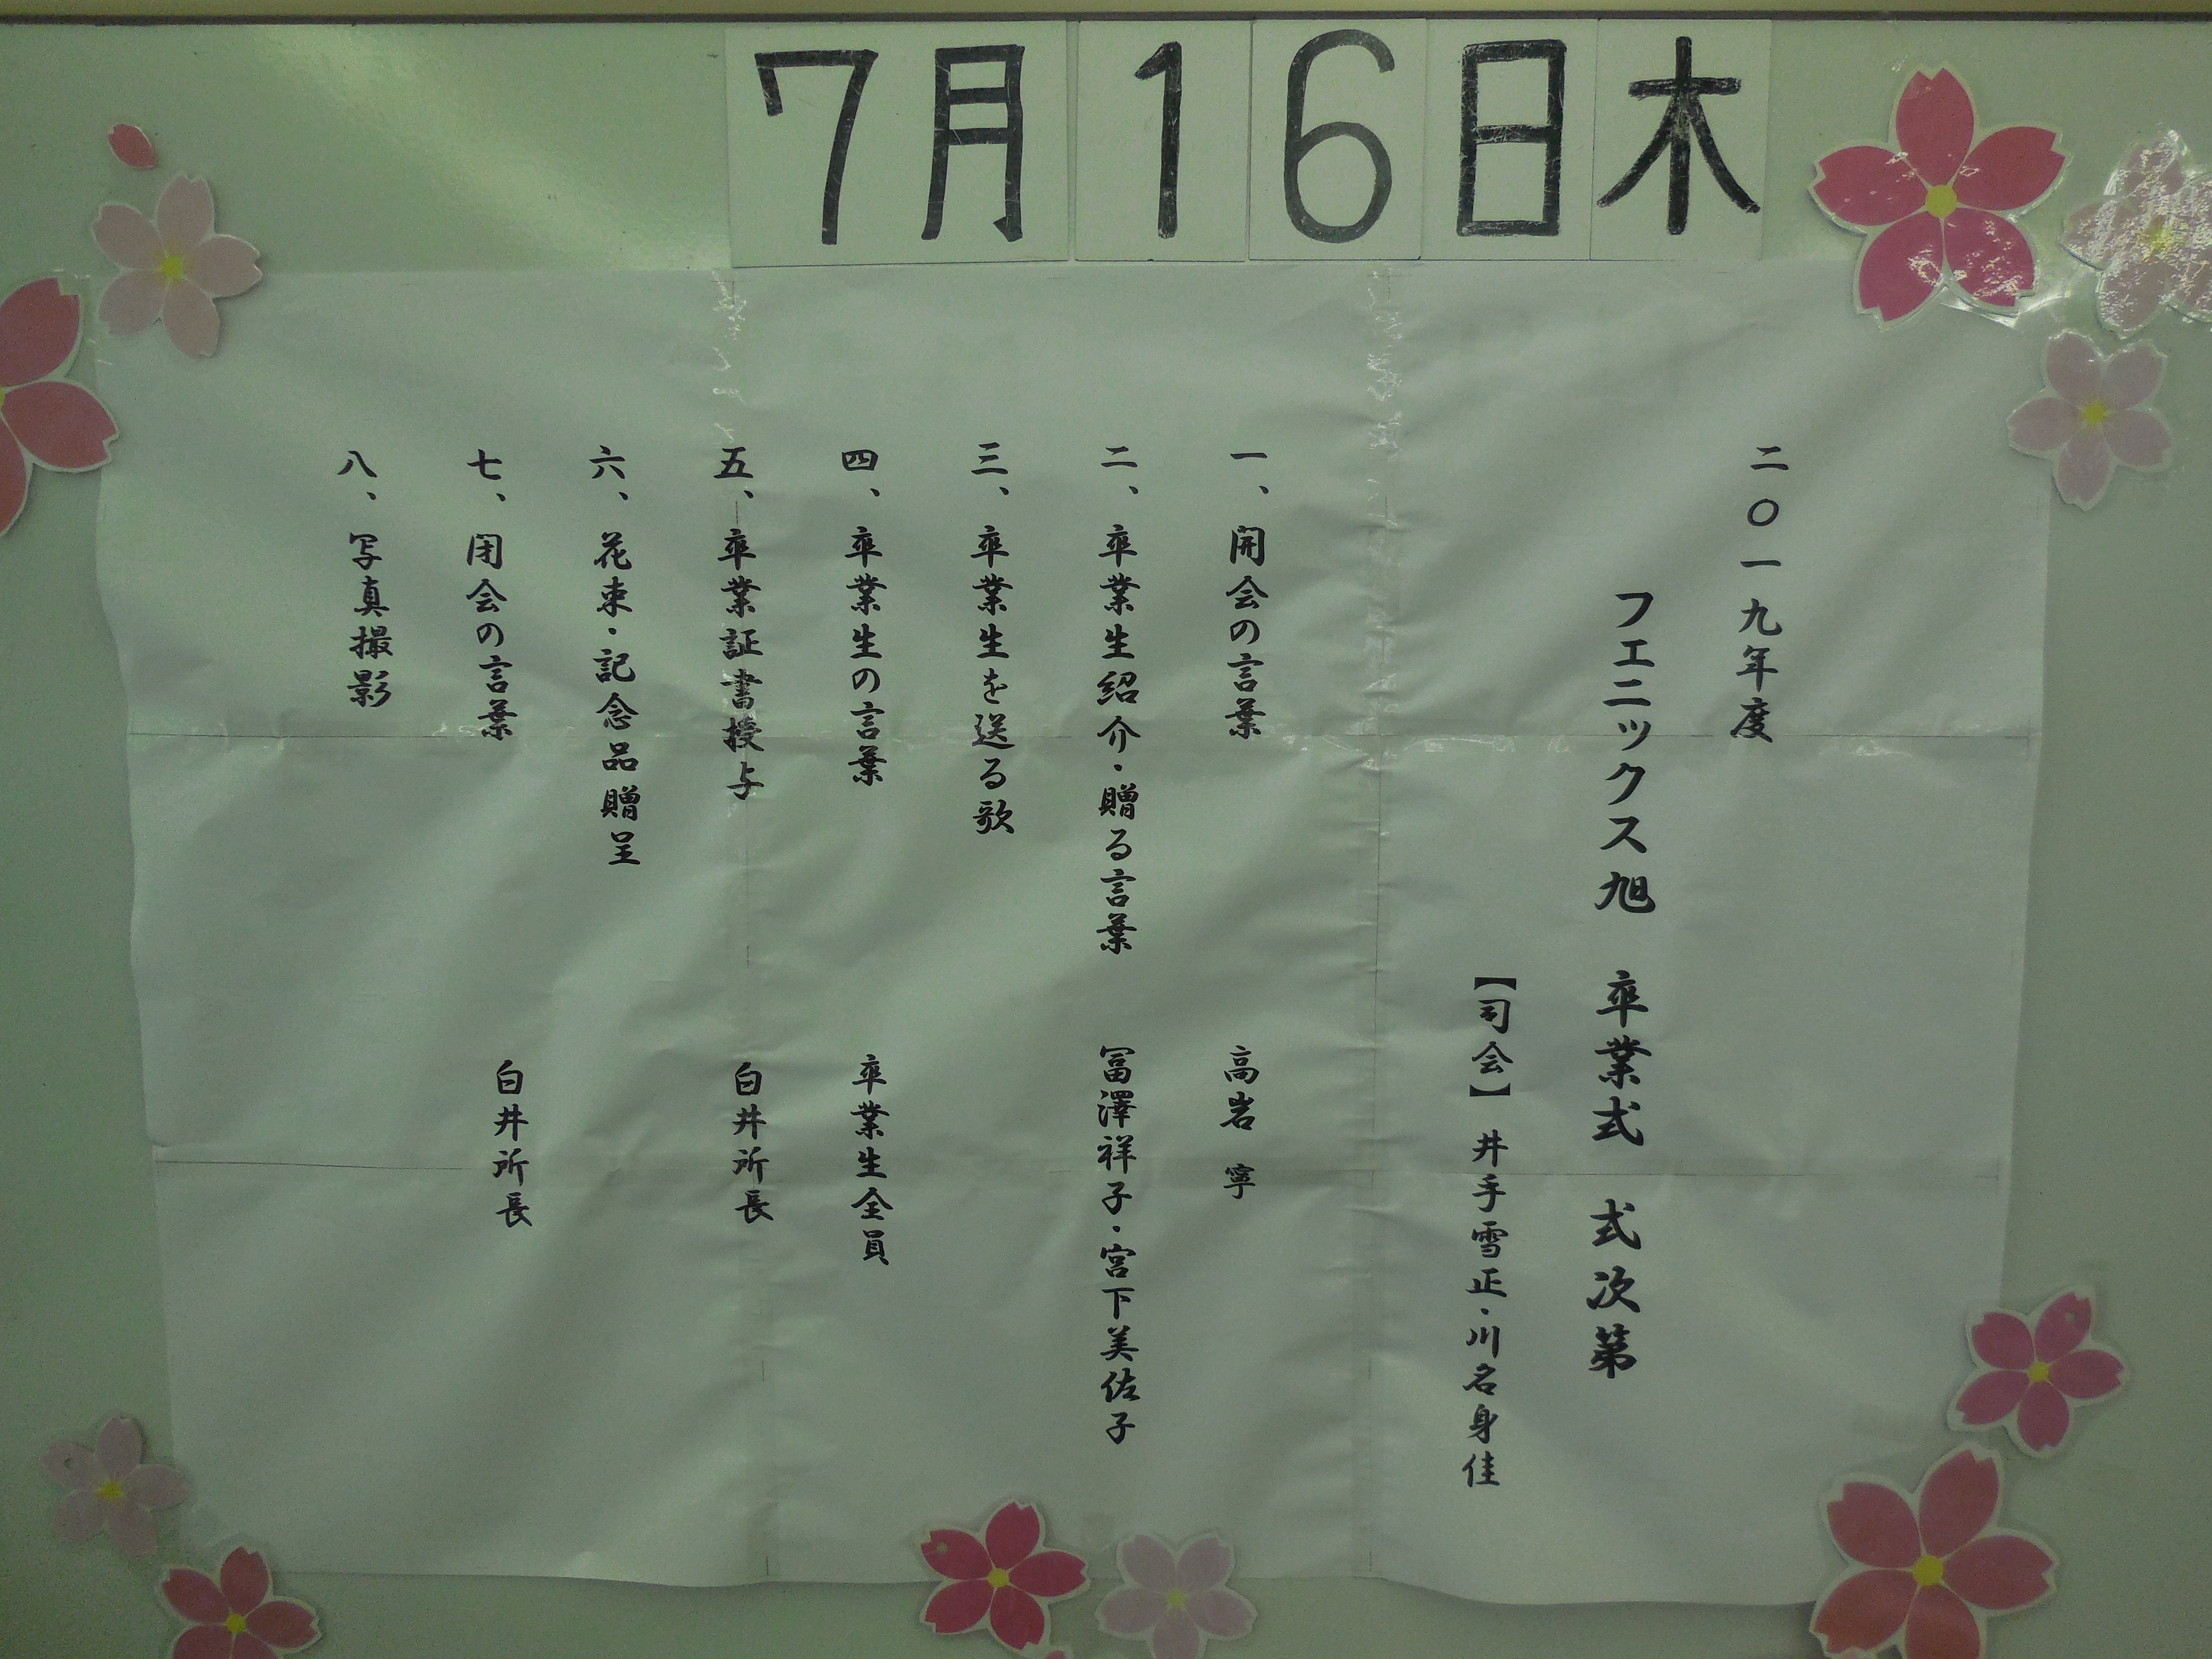 7月16日木
二〇一九年度
フェニックス旭 卒業式 式次第
【司会】 井手雪正・川名身佳
一、開会の言葉 高岩 寧
二、卒業生紹介・贈る言葉 冨澤祥子・宮下美佐子
三、卒業生を送る歌
四、卒業生の言葉 卒業生全員
五、卒業証書授与 白井所長
六、花束・記念品贈呈
七、閉会の言葉 白井所長
八、写真撮影